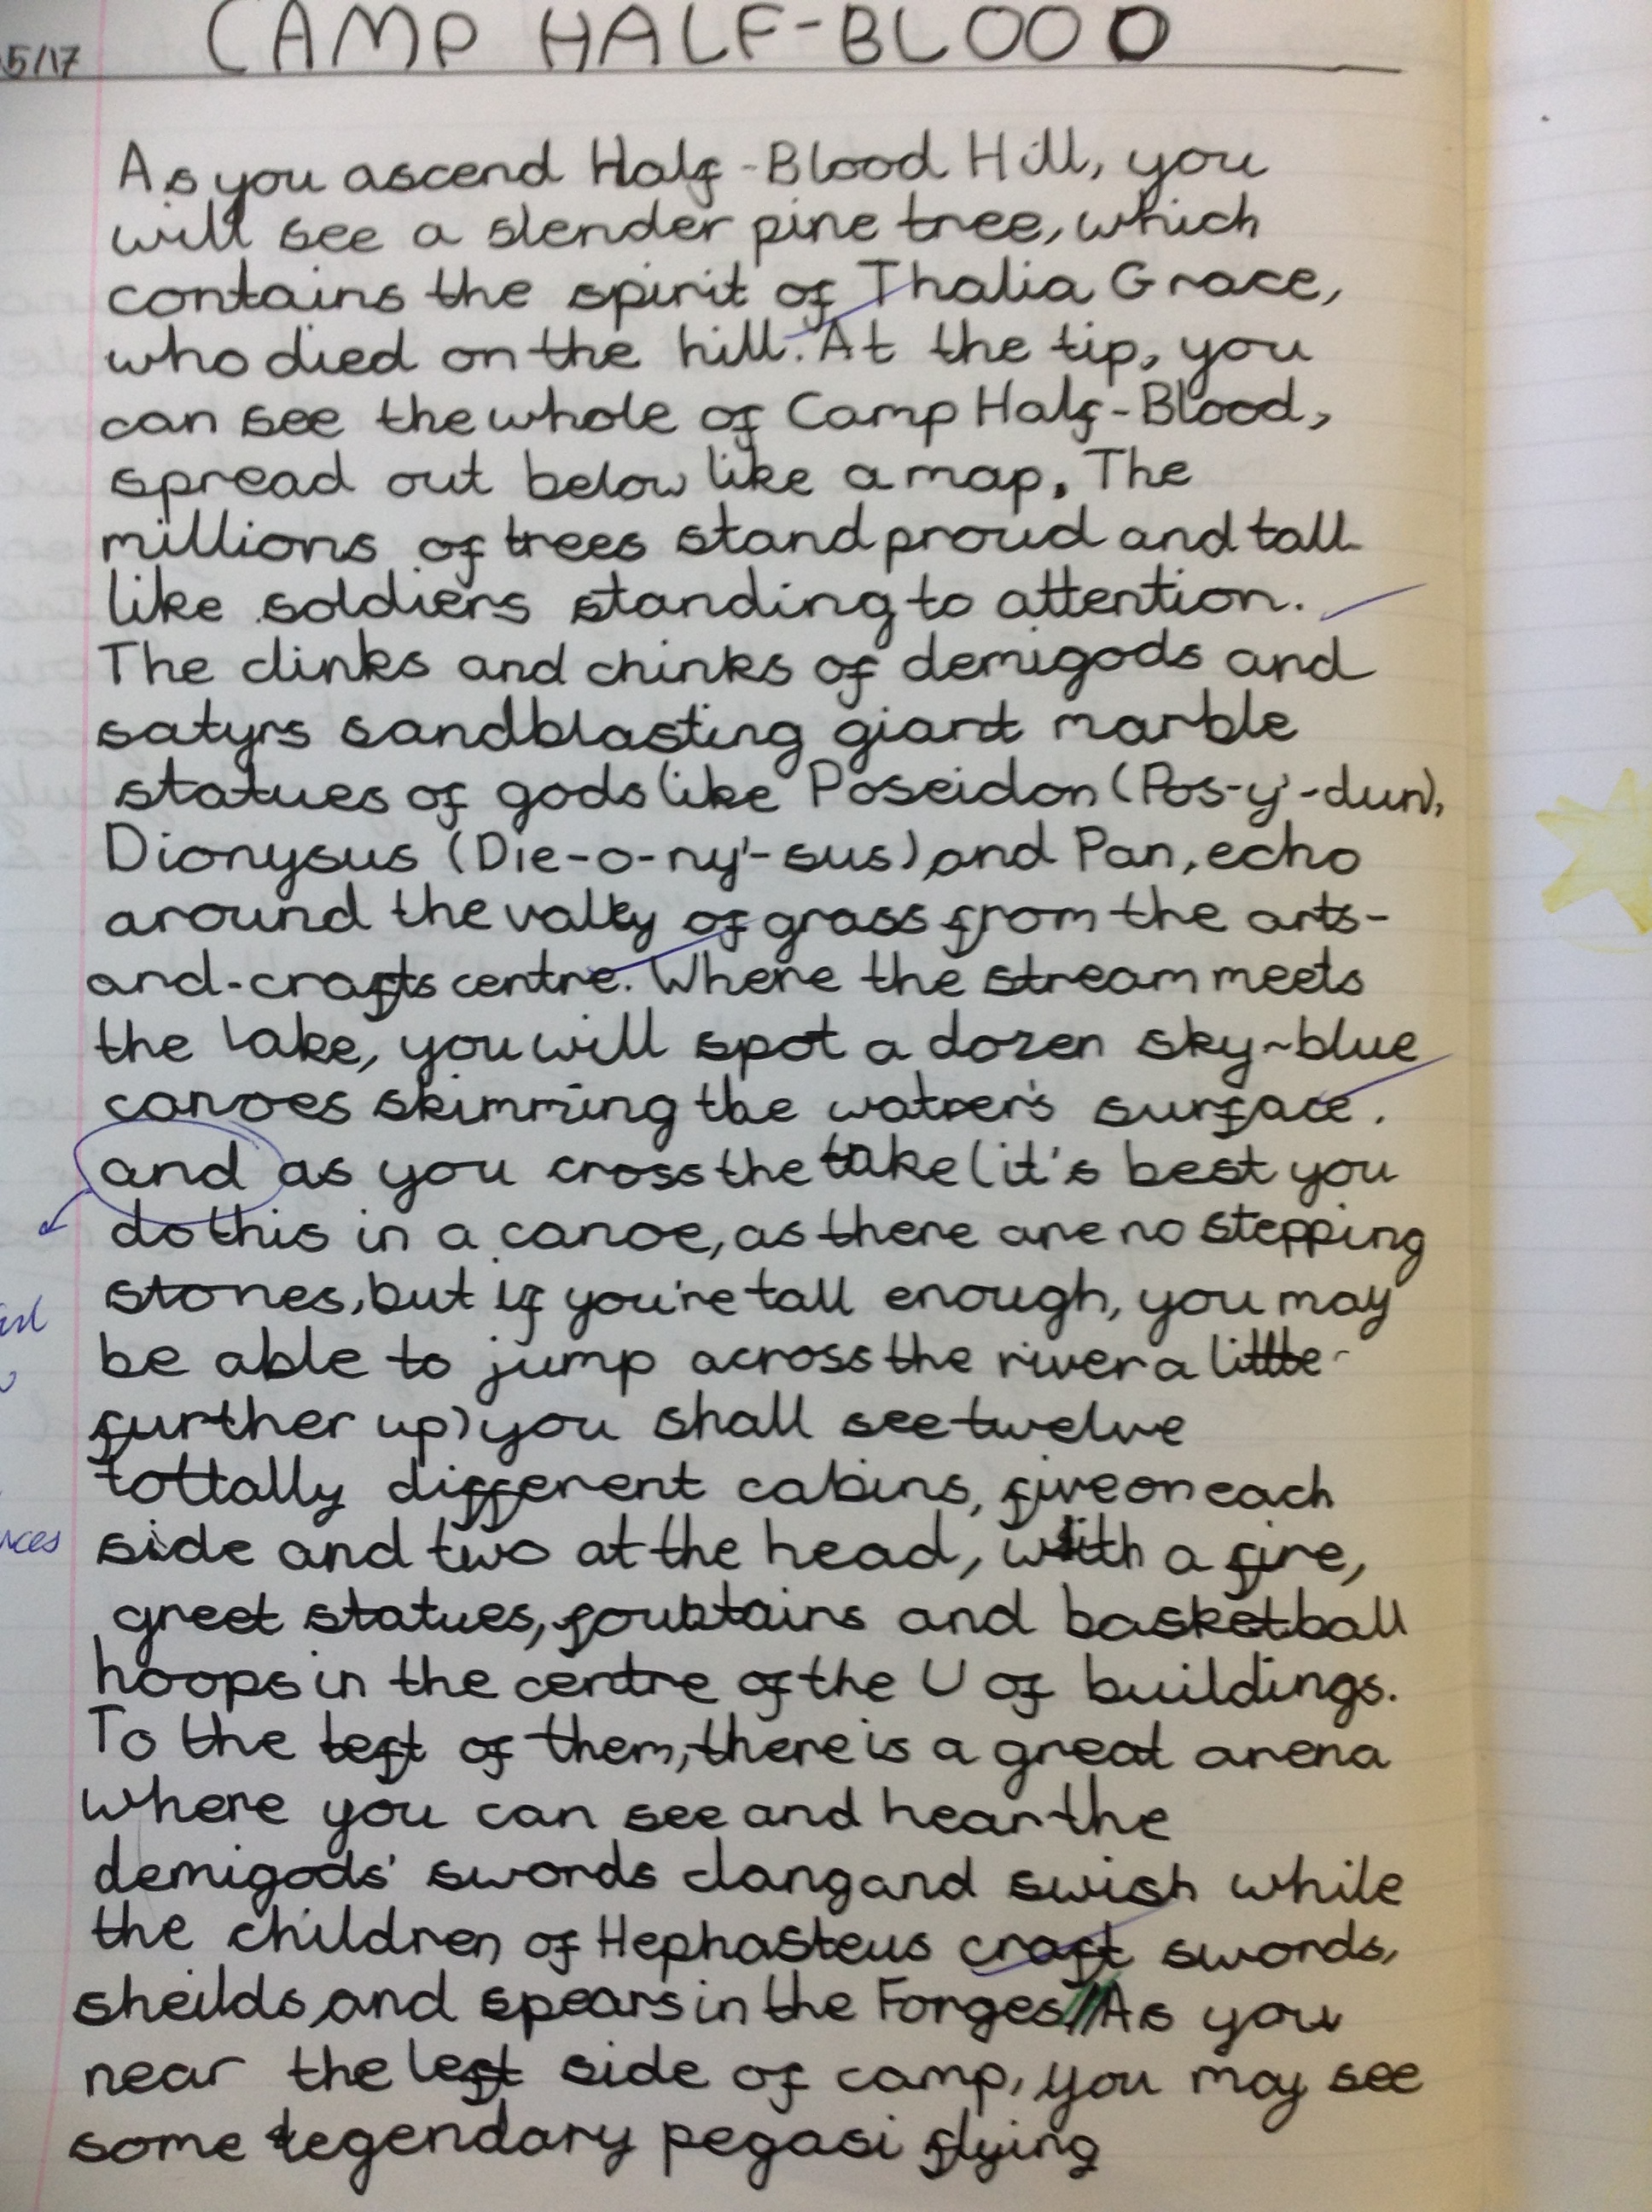 5/17 CAMP HALF-BLOOD
As you ascend Half-Blood Hill, you
will see a slender pine tree, which
contains the spirit of Thalia Grace,
who died on the hill. At the tip, you
can see the whole of Camp Half-Blood,
spread out below like a map. The
millions of trees stand proud and tall
like soldiers standing to attention.
The clinks and chinks of demigods and
satyrs sandblasting giant marble
statues of gods like Poseidon (Pos-y'-dun),
Dionysus (Die-o-ny'-sus), and Pan, echo
around the valley of grass from the arts-
and-crafts centre. Where the stream meets
the lake, you will spot a dozen sky-blue
canoes skimming the water's surface.
and as you cross the lake (it's best you
do this in a canoe, as there are no stepping
stones, but if you're tall enough, you may
be able to jump across the river a little
further up) you shall see twelve
tottally different cabins, five on each
side and two at the head, with a fire,
greet statues, fountains and basketball
hoops in the centre of the U of buildings.
To the left of them, there is a great arena
where you can see and hear the
demigods' swords clang and swish while
the children of Hephasteus craft swords,
sheilds, and spears in the Forges.//As you
near the left side of camp, you may see
some legendary pegasi flying